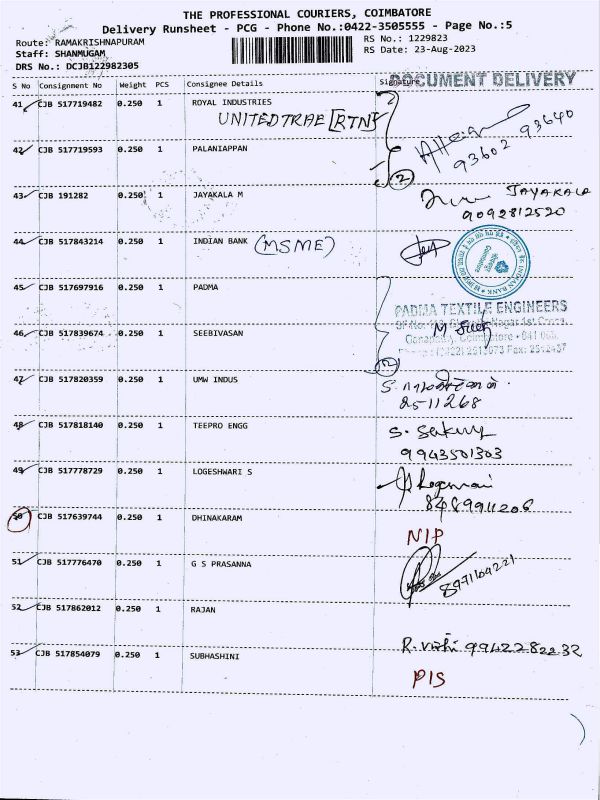 THE PROFESSIONAL COURIERS, COIMBATORE
Delivery Runsheet - PCG - Phone No.:0422-3505555 - Page No.:5
Route: RAMAKRISHNAPURAM
RS No.: 1229823
Staff: SHANMUGAM
RS Date: 23-Aug-2023
DRS No.: DCJB122982305
S No Consignment No Weight PCS Consignee Details Signature
DOCUMENT DELIVERY
41 CJB 517719482 0.250 1 ROYAL INDUSTRIES
UNITED TRAE [RTN]
93602 93640
42 CJB 517719593 0.250 1 PALANIAPPAN
2
43 CJB 191282 0.250 1 JAYAKALA M
JAYAKALA
9092812520
44 CJB 517843214 0.250 1 INDIAN BANK (MSME)
INDIAN BANK
45 CJB 517697916 0.250 1 PADMA
PADMA TEXTILE ENGINEERS
46 CJB 517839674 0.250 1 SEEBIVASAN
2
47 CJB 517820359 0.250 1 UMW INDUS
2511268
48 CJB 517818140 0.250 1 TEEPRO ENGG
9943501303
49 CJB 517778729 0.250 1 LOGESHWARI S
8489911206
50 CJB 517639744 0.250 1 DHINAKARAM
NIP
51 CJB 517776470 0.250 1 G S PRASANNA
8971169221
52 CJB 517862012 0.250 1 RAJAN
9942282232
53 CJB 517854079 0.250 1 SUBHASHINI
PIS